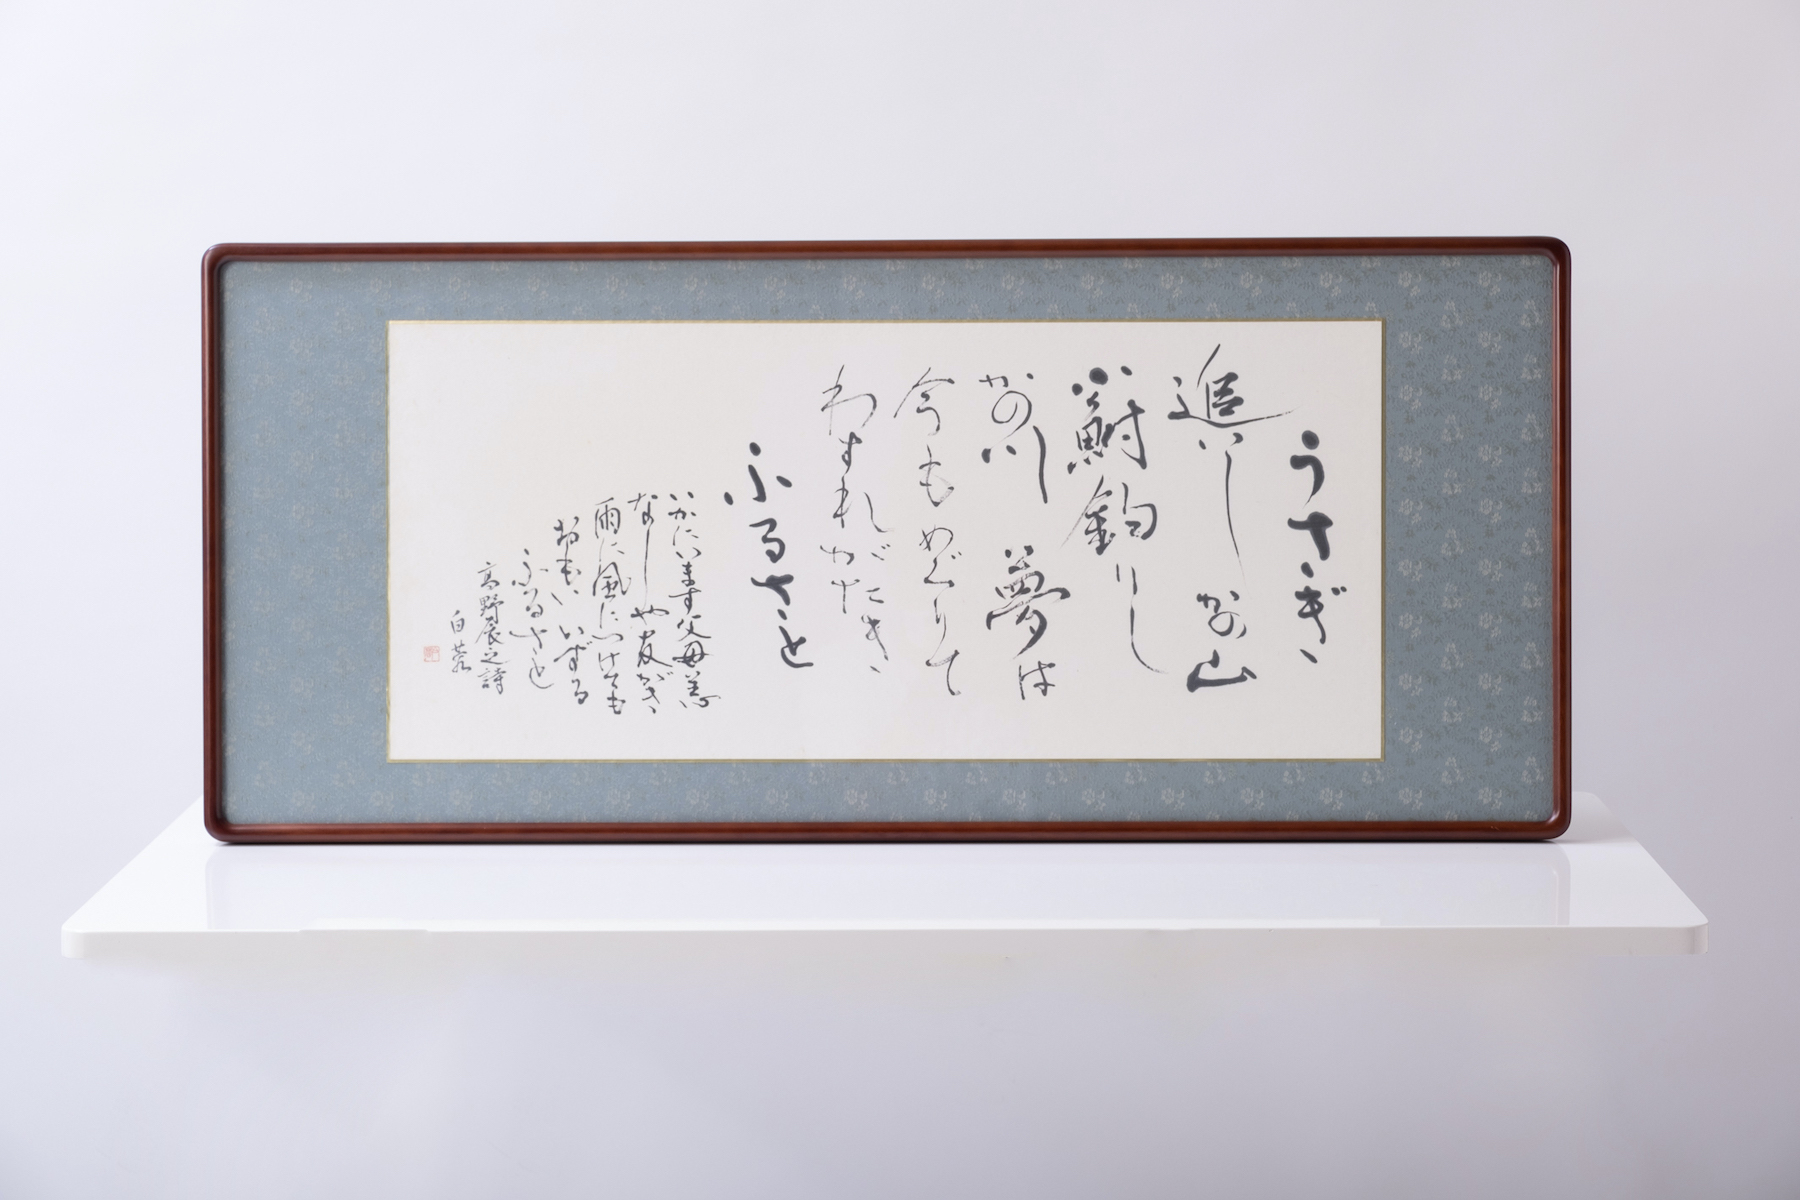 うさぎ
追いしかの山
小鮒釣りし
かの川夢は
今もめぐりて
わすれがたき
ふるさと
いかにいます父母恙
なしや友がき
雨に風につけても
おもいいずる
ふるさと
高野辰之詩
白